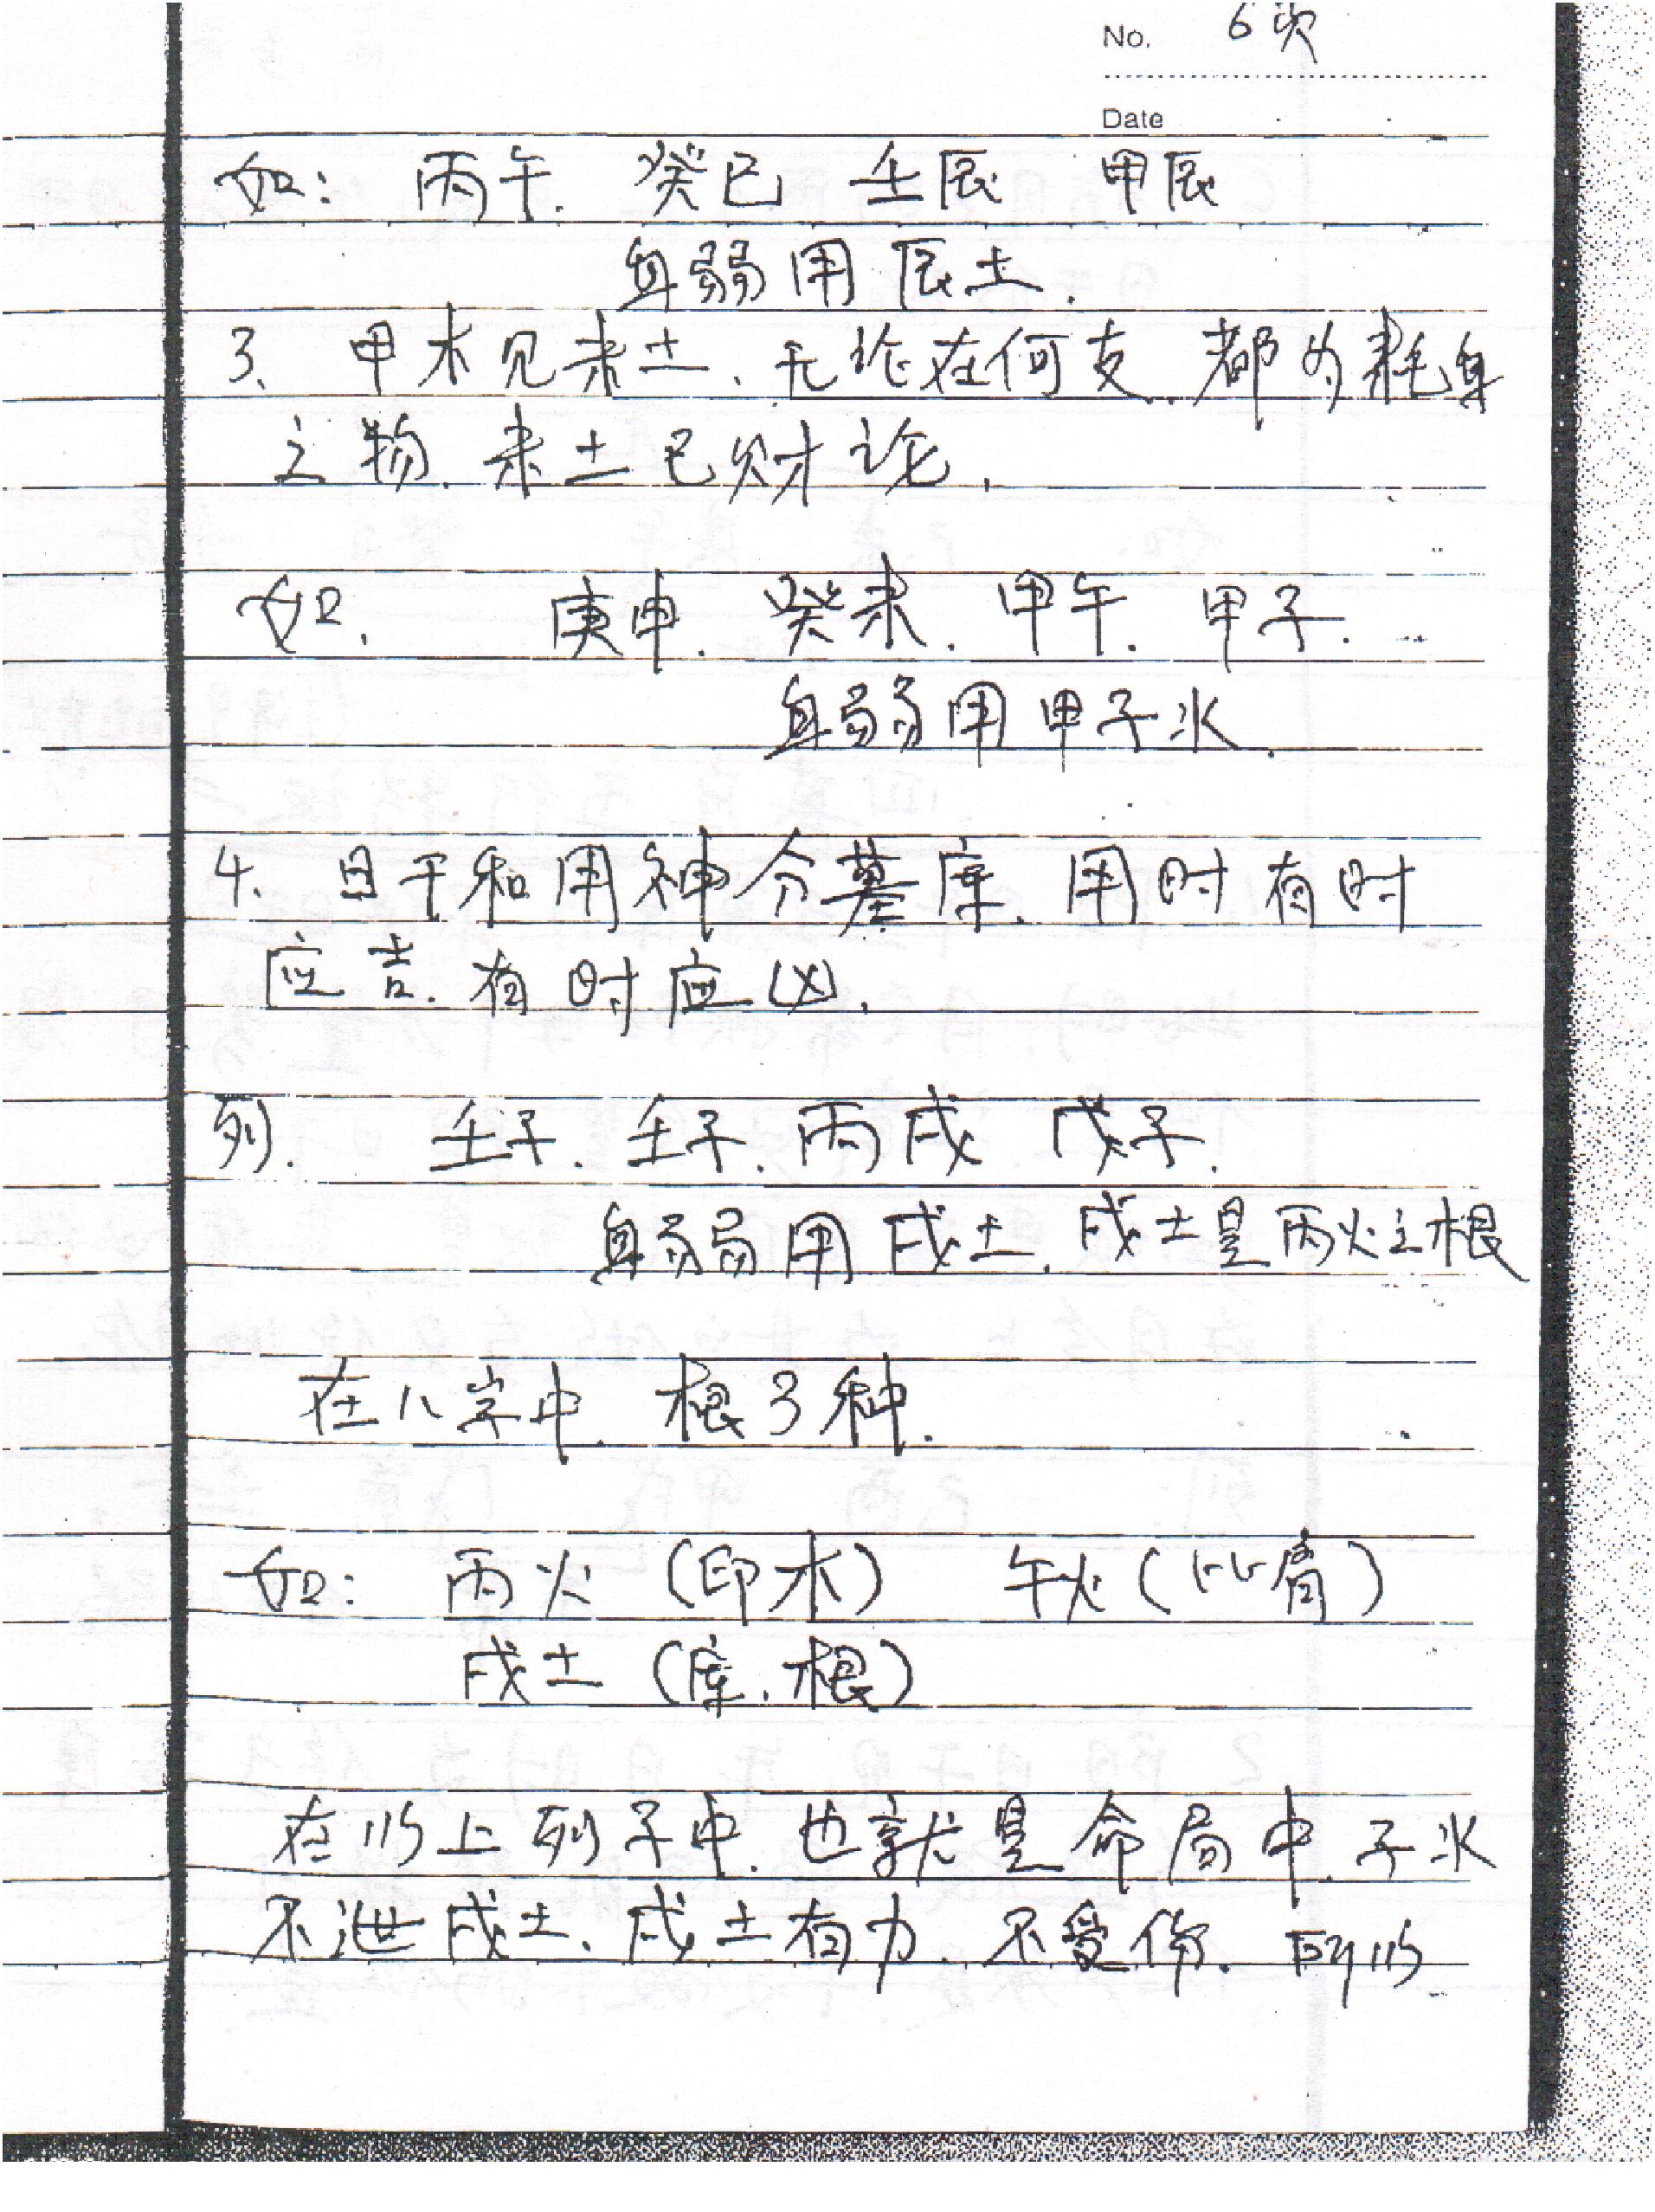 No. 6页
Date
如: 丙午. 癸巳 壬辰 甲辰
身弱用辰土.
3、甲木见未土、无论在何支.都为耗身
之物.未土已财论.
如. 庚申. 癸未. 甲午. 甲子.
身弱用甲子水.
4、日干和用神分墓库.用时有时
应吉.有时应凶.
列. 壬子. 壬子. 丙戌 戊子.
身弱用戌土.戌土是丙火之根
在八字中.根3种.
如: 丙火(印木) 午火(比肩)
戌土(库.根)
在以上列子中.也就是命局中.子水
不泄戌土、戌土有力.不受伤.所以